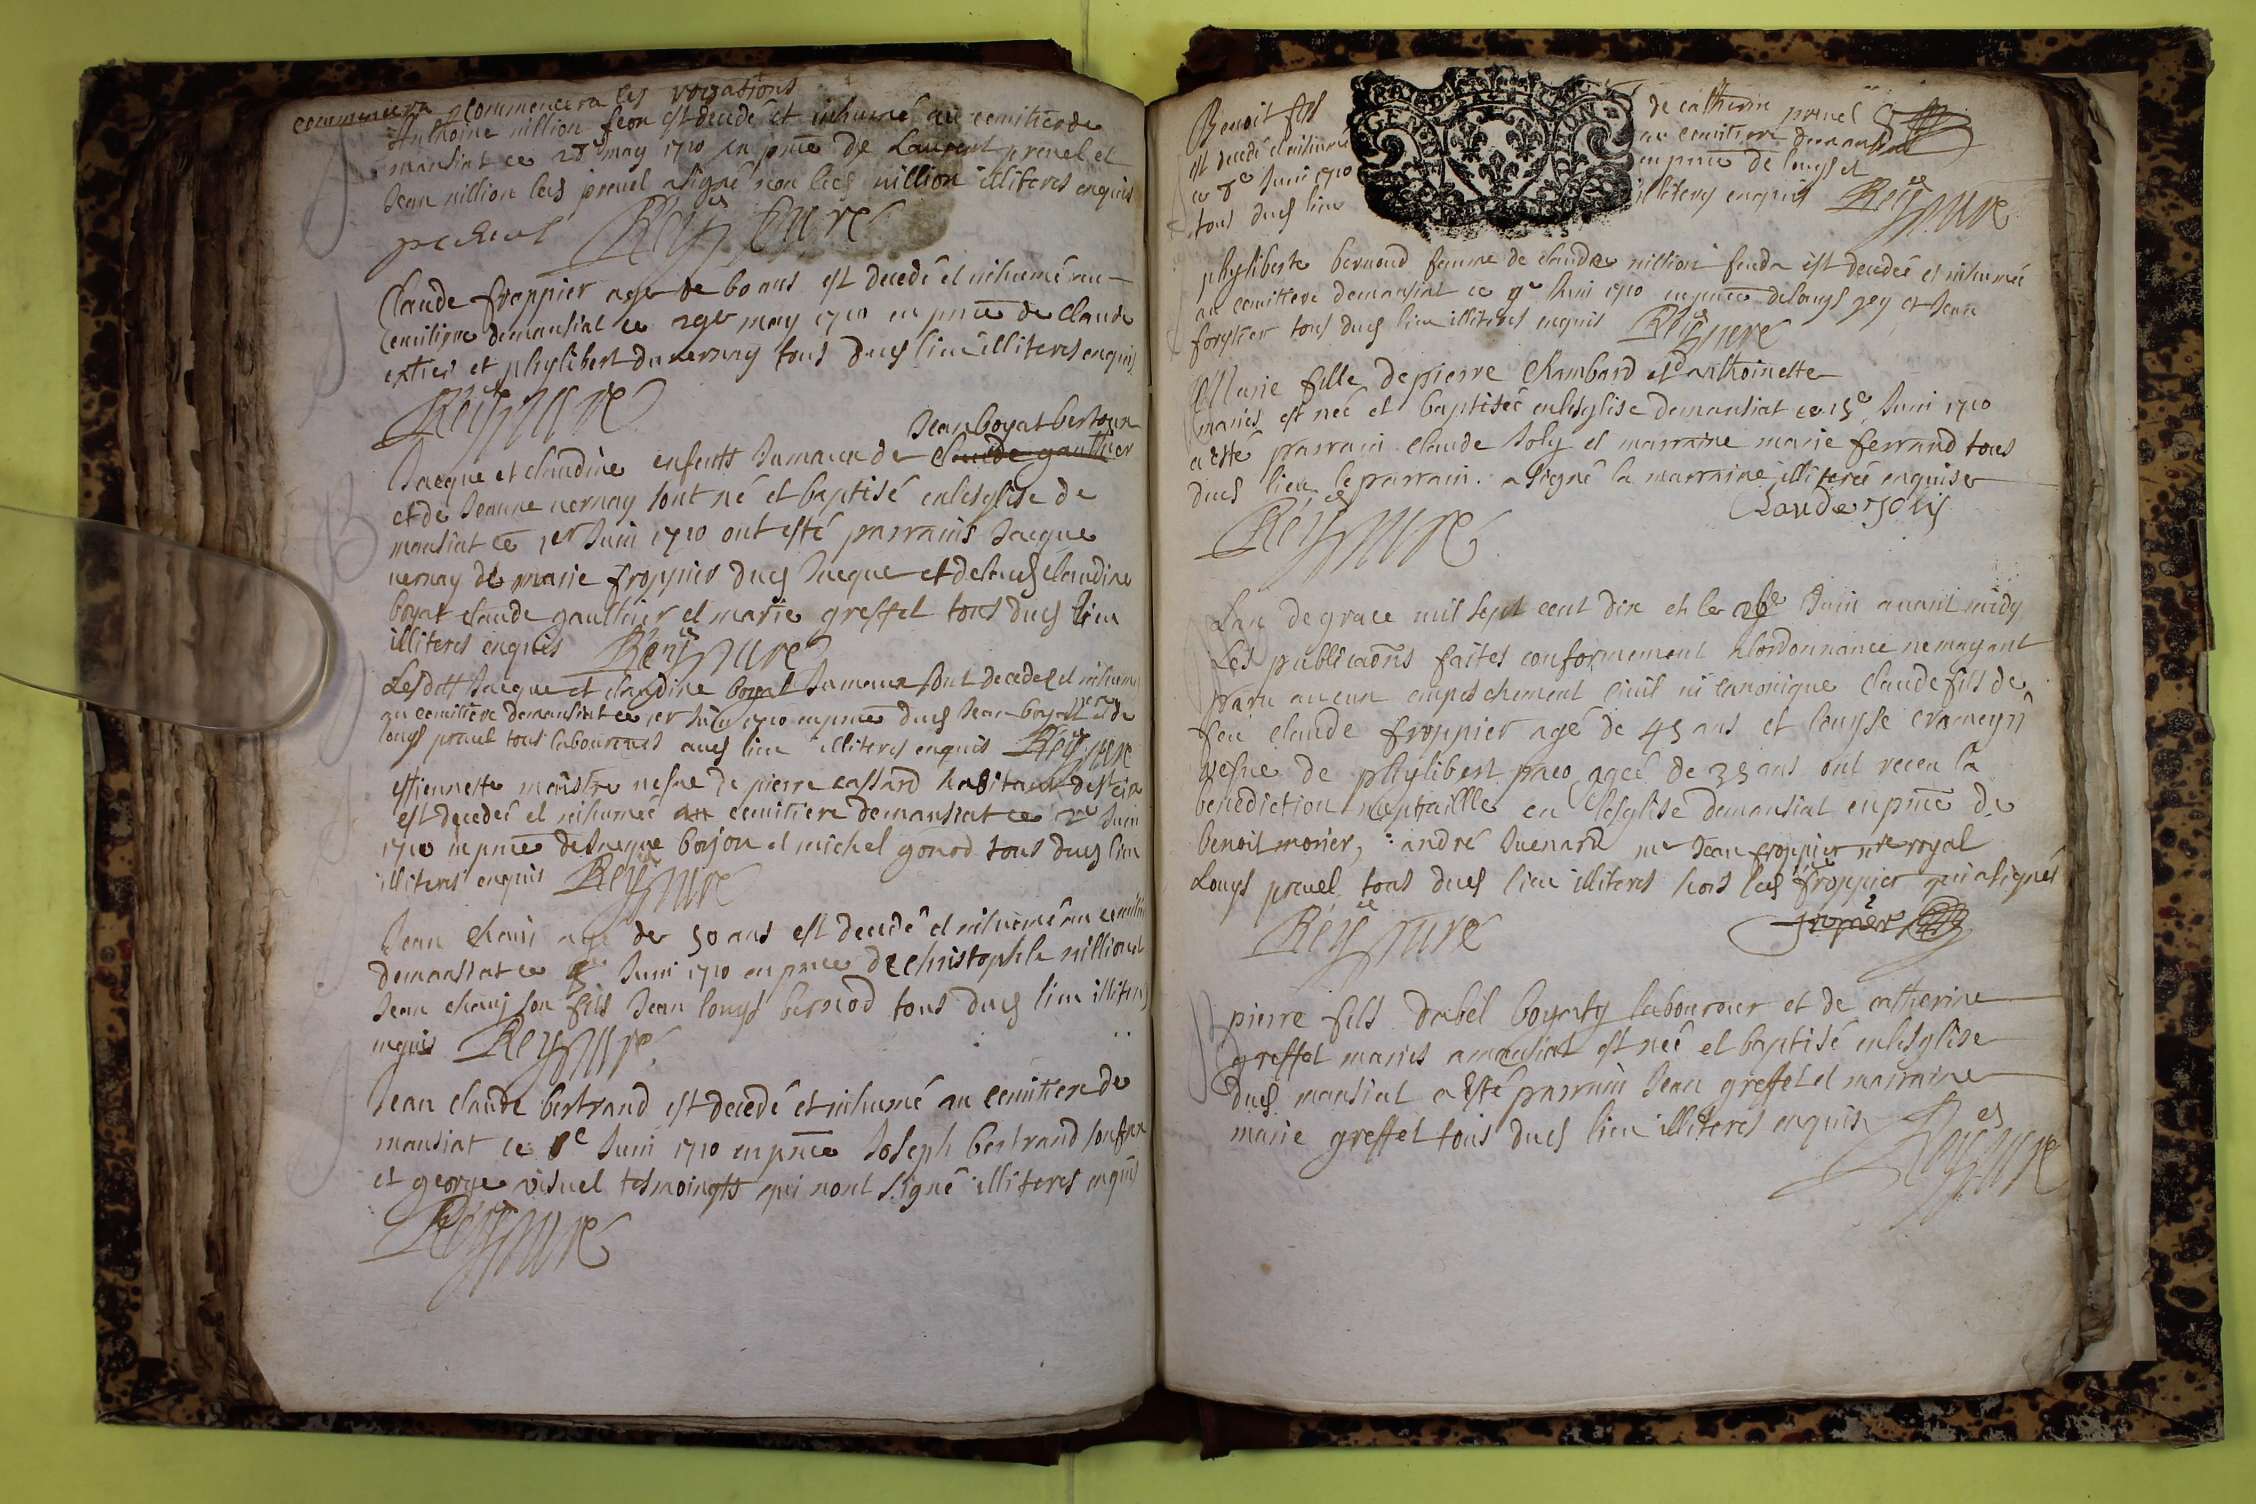 commencera commencera les rogations
Anthoine million feon est decedé et inhumé au cemitier de
mansiat ce 28e may 1710 en pnce de Laurent prevel et
Jean million led prevel a signé non led million illiteres enquis
prevel Rey curé
Claude froppier age de 60 ans est decedé et inhumé au
cemitiere de mansiat ce 29e may 1710 en pnce de Claude
et phylibert duvernay tous dud lieu illiteres enquis
Rey curé
Jean boyat bertoun
Jacque et claudine enfents Jumaux de Claude gauthier
et de Jeanne vernay sont né et baptisé en lesglise de
mansiat ce 1er Juin 1710 ont esté parrains Jacque
vernay de marie froppier dud Jacque et de lad claudine
boyat claude gauthier et marie greffet tous dud lieu
illiteres enquis Rey curé
Lesdtt Jacque et claudine boyat Jumaux sont decedé et inhumé
au cemitiere de mansiat ce 1er Juin 1710 en pnce dud Jean boyat et de
louys prevel tous laboureurs aud lieu illiteres enquis Rey curé
estiennette maistre vefve de pierre cassard habitant
est decedée et inhumée au cemitiere de mansiat ce 2e Juin
1710 en pnce de Jacque borjon et michel gonod tous dud lieu
illiteres enquis Rey curé
Jean chanj agé de 50 ans est decedé et inhumé au cemitier
de mansiat ce Juin 1710 en pnce de christophle million et
Jean chanj son fils Jean louys bernod tous dud lieu illiteres
enquis Rey curé
Jean claude bertrand est decedé et inhumé au cemitiere de
mansiat ce 8e Juin 1710 en pnce Joseph bertrand son frere
et george visuel tesmoingts qui nont signé illiteres enquis
Rey curé
Benoit fils de catherin prevel
est decedé et inhumé au cemitiere de mansiat
ce 8e Juin 1710 en pnce de louys et
tous dud lieu illiteres enquis Rey curé
phyliberte bernoud femme de claude million feuda est decedée et inhumée
au cemittere de mansiat ce 9e Juin 1710 en pnce de louys rey et Jean
forestier tous dud lieu illiteres enquis Rey curé
Marie fille de pierre Chambard et danthoinette
mariés est née et baptisée en lesglise de mansiat ce 15e Juin 1710
a esté parrain claude Joly et marraine marie ferrand tous
dud lieu le parrain a signé la marraine illiterée enquise
Rey curé Claude Joly
Lan de grace mil sept cent dix et le 26e Juin avant midy
Les publicaons faites conformement a lordonnance ne mayant
paru aucun empeschement civil ni canonique Claude fils de
feu claude froppier agé de 45 ans et louyse
vefve de phylibert agée de 35 ans ont receu la
benediction nuptaille en lesglise de mansiat en pnce de
benoit morier, andré Juenard me Jean froppier nre royal
Louys prevel tous dud lieu illiteres hors led froppier qui a signé
Rey curé fropier
pierre fils dabel boyaty laboureur et de catherine
greffet mariés a mansiat est née et baptisé en lesglise
dud mansiat a esté parrain Jean greffet et marraine
marie greffet tous dud lieu illiteres enquis
Rey curé